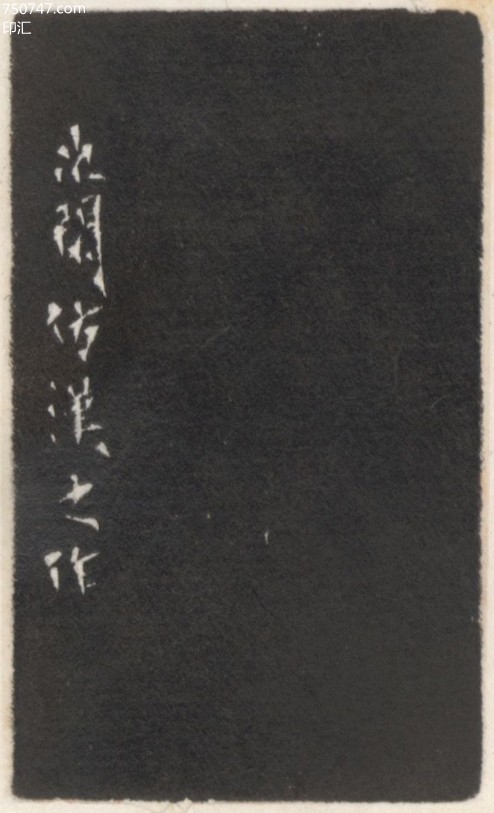 750747.com
印汇
次閑仿漢之作